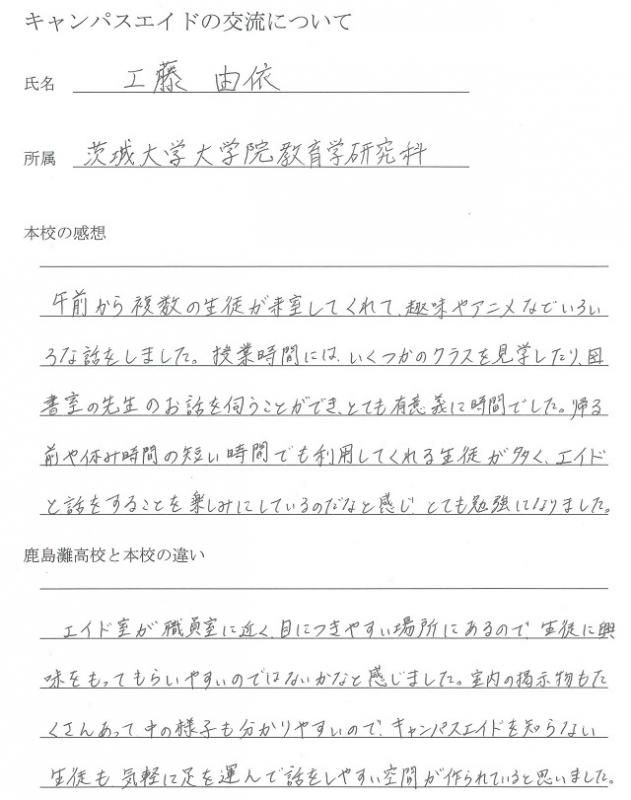 キャンパスエイドの交流について
氏名 工藤 由依
所属 茨城大学大学院教育学研究科
本校の感想
午前から複数の生徒が来室してくれて、趣味やアニメなどいろい
ろな話をしました。授業時間には、いくつかのクラスを見学したり、図
書室の先生のお話を伺うことができ、とても有意義に時間でした。帰る
前や休み時間の短い時間でも利用してくれる生徒が多く、エイド
と話をすることを楽しみにしているのだなと感じ、とても勉強になりました。
鹿島灘高校と本校の違い
エイド室が職員室に近く、目につきやすい場所にあるので、生徒に興
味をもってもらいやすいのではないかなと感じました。室内の掲示物もた
くさんあって中の様子も分かりやすいので、キャンパスエイドを知らない
生徒も、気軽に足を運んで話をしやすい空間が作られていると思いました。